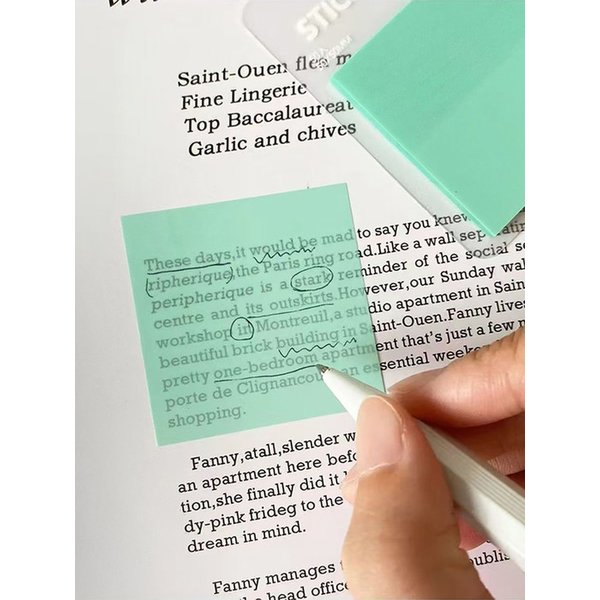 STIC
Saint-Ouen flea m
Fine Lingerie
Top Baccalaureat
Garlic and chives
These days,it would be mad to say you knew
ripherique,the Paris ring road.Like a wall separatin
peripherique is a stark reminder of the social se
centre and its outskirts.However,our Sunday wal
workshop in Montreuil,a studio apartment in Sain
beautiful brick building in Saint-Ouen.Fanny lives
pretty one-bedroom apartment that's just a few m
porte de Clignancou an essential weeke
shopping.
Fanny,atall,slender w
an apartment here befo
tion,she finally did it
dy-pink frideg to the
dream in mind.
Fanny manages
the head office
publis